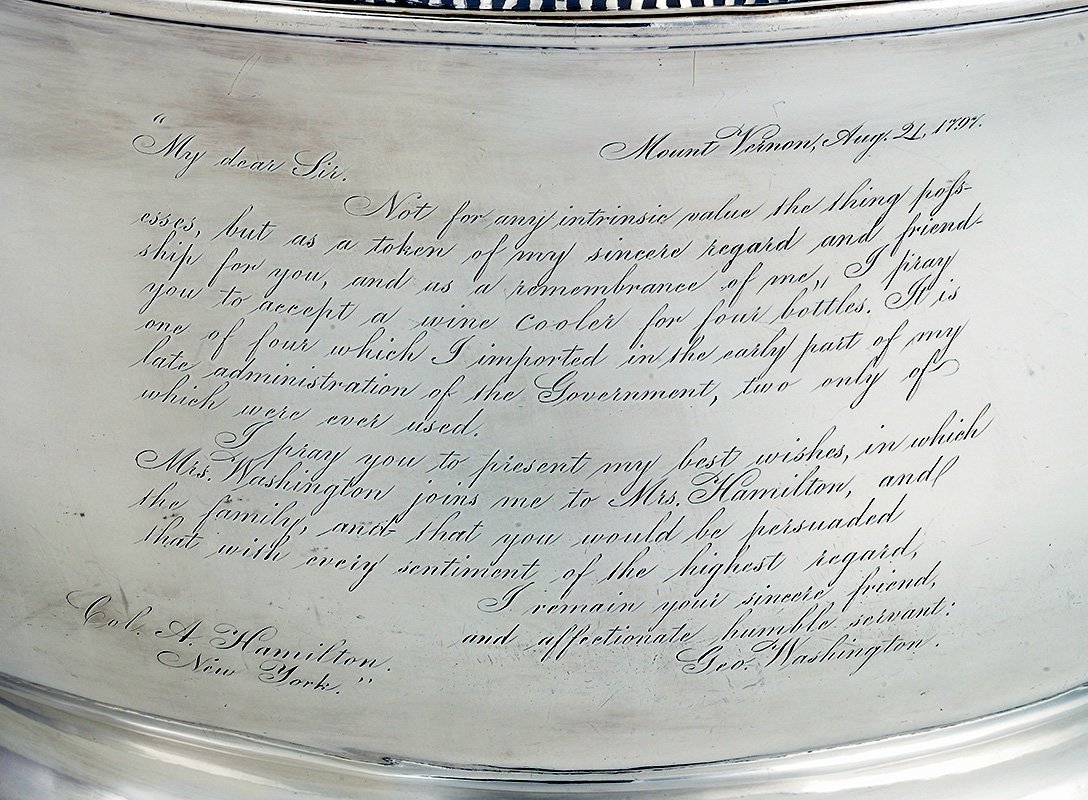 "My dear Sir. Mount Vernon, Aug. 21, 1797.
Not for any intrinsic value the thing poſs-
esses, but as a token of my sincere regard and friend-
ship for you, and as a remembrance of me, I pray
you to accept a wine cooler for four bottles. It is
one of four which I imported in the early part of my
late administration of the Government, two only of
which were ever used.
I pray you to present my best wishes, in which
Mrs. Washington joins me to Mrs. Hamilton, and
the family, and that you would be persuaded
that with every sentiment of the highest regard,
I remain your sincere friend,
and affectionate humble servant:
Geo. Washington.
Col. A. Hamilton.
New York."